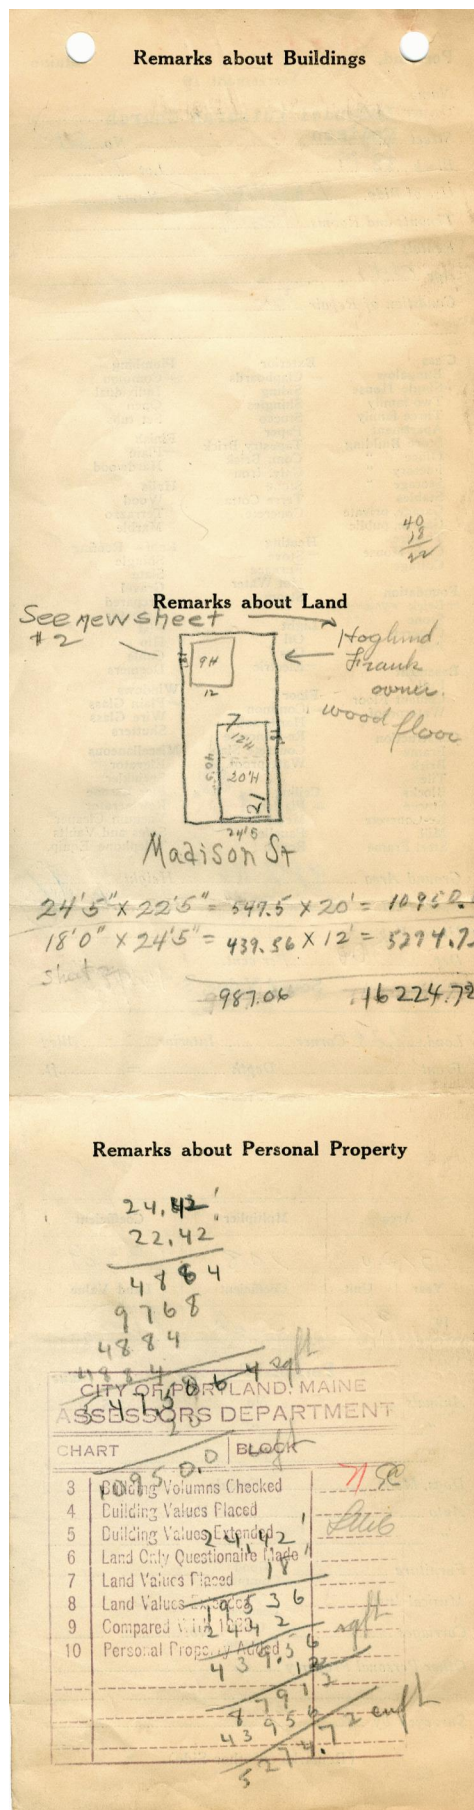 Remarks about Buildings
40
18
22
Remarks about Land
See new sheet
#2
Hoglund
Frank
owner.
wood floor
9H
12
7
12'H
40'5"
20'H
21
24'5
Madison St
24'5" X 22'5" = 547.5 X 20' = 10950.
18'0" X 24'5" = 439.56 X 12' = 5274.7
987.06 16224.72
Remarks about Personal Property
24.42'
22.42
4884
9768
4884
4884
sqft
CITY OF PORTLAND, MAINE
ASSESSORS DEPARTMENT
CHART BLOCK
10950.0
3 Building Volumns Checked
4 Building Values Placed
5 Building Values Extended
24.42'
6 Land Only Questionaire Made
18'
7 Land Values Placed
19536
8 Land Values Extended
2442
9 Compared With 1923
439.56 sqft
10 Personal Property Added
12
87912
43956
5274.72 cuft